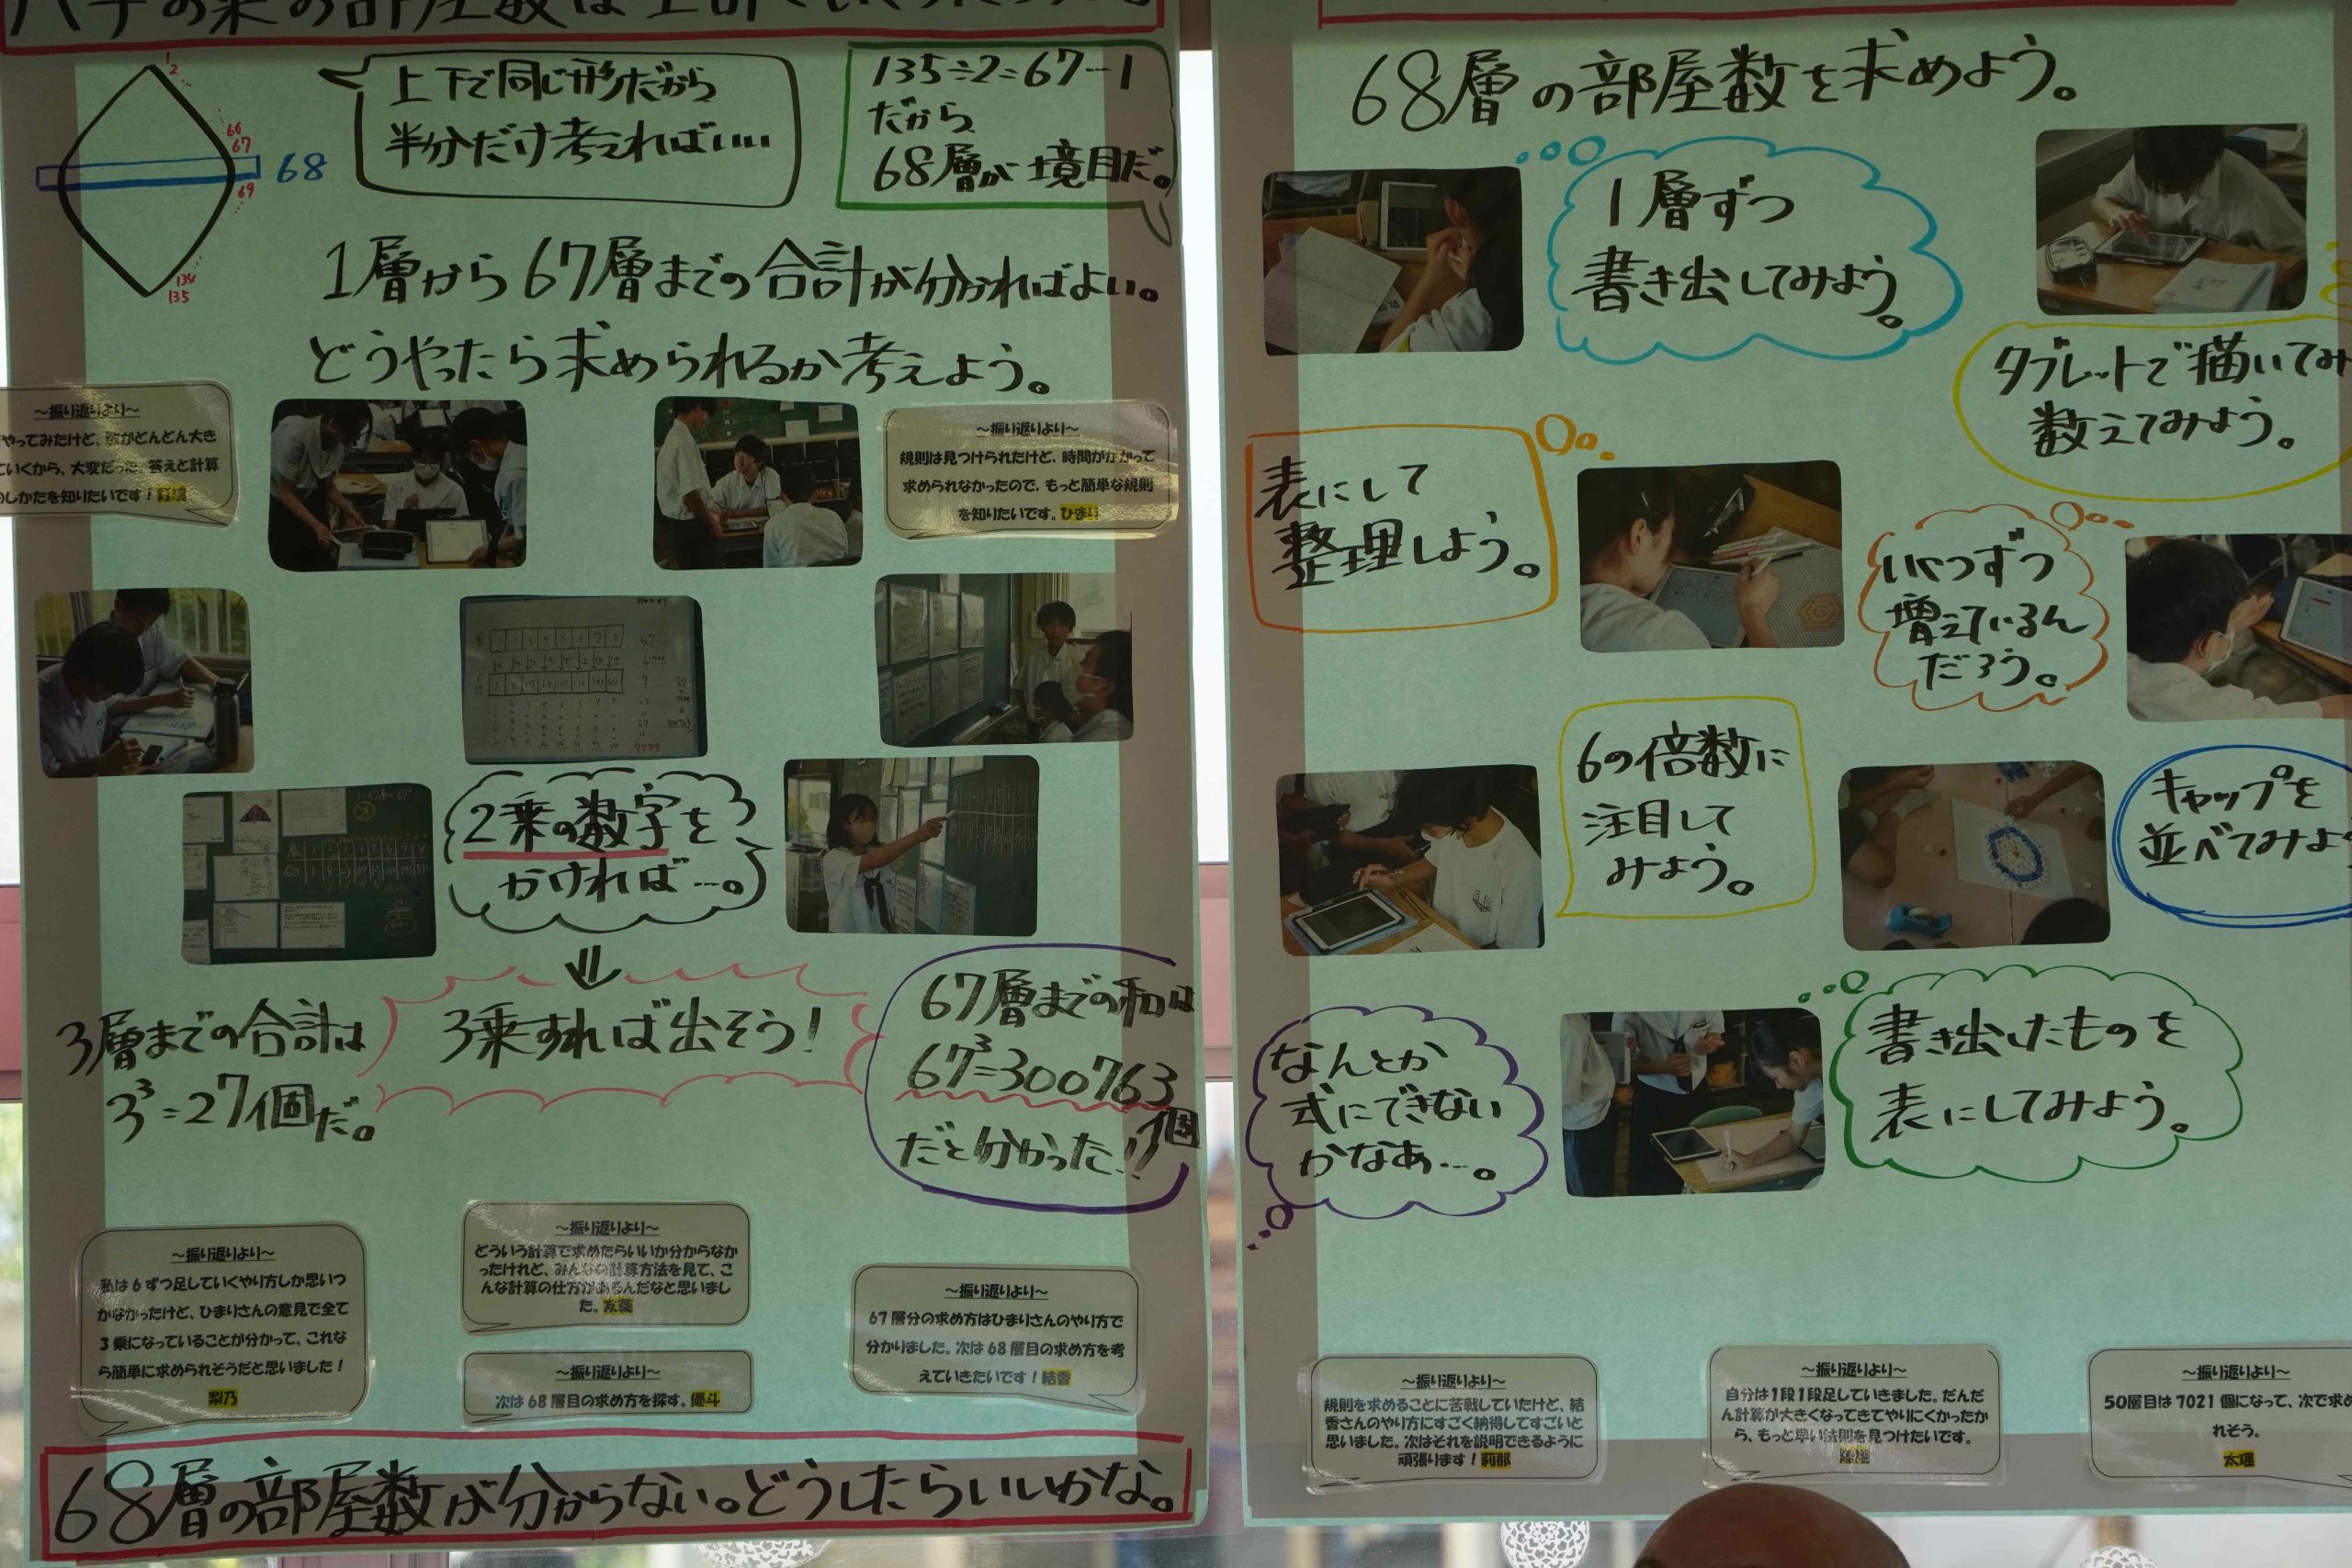 ハチの巣の部屋数は全部で
上下で同じ形だから
半分だけ考えればいい
135÷2=67…1
だから
68層が境目だ。
1
2
66
67
68
69
134
135
1層から67層までの合計が分かればよい。
どうやったら求められるか考えよう。
～振り返りより～
やってみたけど、数がどんどん大き
ていくから、大変だった。答えと計算
のしかたを知りたいです！
～振り返りより～
規則は見つけられたけど、時間がかかって
求められなかったので、もっと簡単な規則
を知りたいです。ひまり
2乗の数字を
かければ…。
⇓
3乗すれば出そう！
3層までの合計は
3³=27個だ。
67層までの和は
67³=300763
個
だと分かった!!
～振り返りより～
私は6ずつ足していくやり方しか思いつ
かなかったけど、ひまりさんの意見で全て
3乗になっていることが分かって、これな
ら簡単に求められそうだと思いました！
梨乃
～振り返りより～
どういう計算で求めたらいいか分からなか
ったけれど、みんなの計算方法を見て、こ
んな計算の仕方があるんだなと思いまし
た。
～振り返りより～
次は68層目の求め方を探す。優斗
～振り返りより～
67層分の求め方はひまりさんのやり方で
分かりました。次は68層目の求め方を考
えていきたいです！結香
68層の部屋数が分からない。どうしたらいいかな。
68層の部屋数を求めよう。
1層ずつ
書き出してみよう。
タブレットで描いてみ
数えてみよう。
表にして
整理しよう。
いくつずつ
増えているん
だろう。
6の倍数に
注目して
みよう。
キャップを
並べてみよ
なんとか
式にできない
かなあ…。
書き出したものを
表にしてみよう。
～振り返りより～
規則を求めることに苦戦していたけど、結
香さんのやり方にすごく納得してすごいと
思いました。次はそれを説明できるように
頑張ります！莉那
～振り返りより～
自分は1段1段足していきました。だんだ
ん計算が大きくなってきてやりにくかったか
ら、もっと早い法則を見つけたいです。
～振り返りより～
50層目は7021個になって、次で求め
れそう。
太瑠